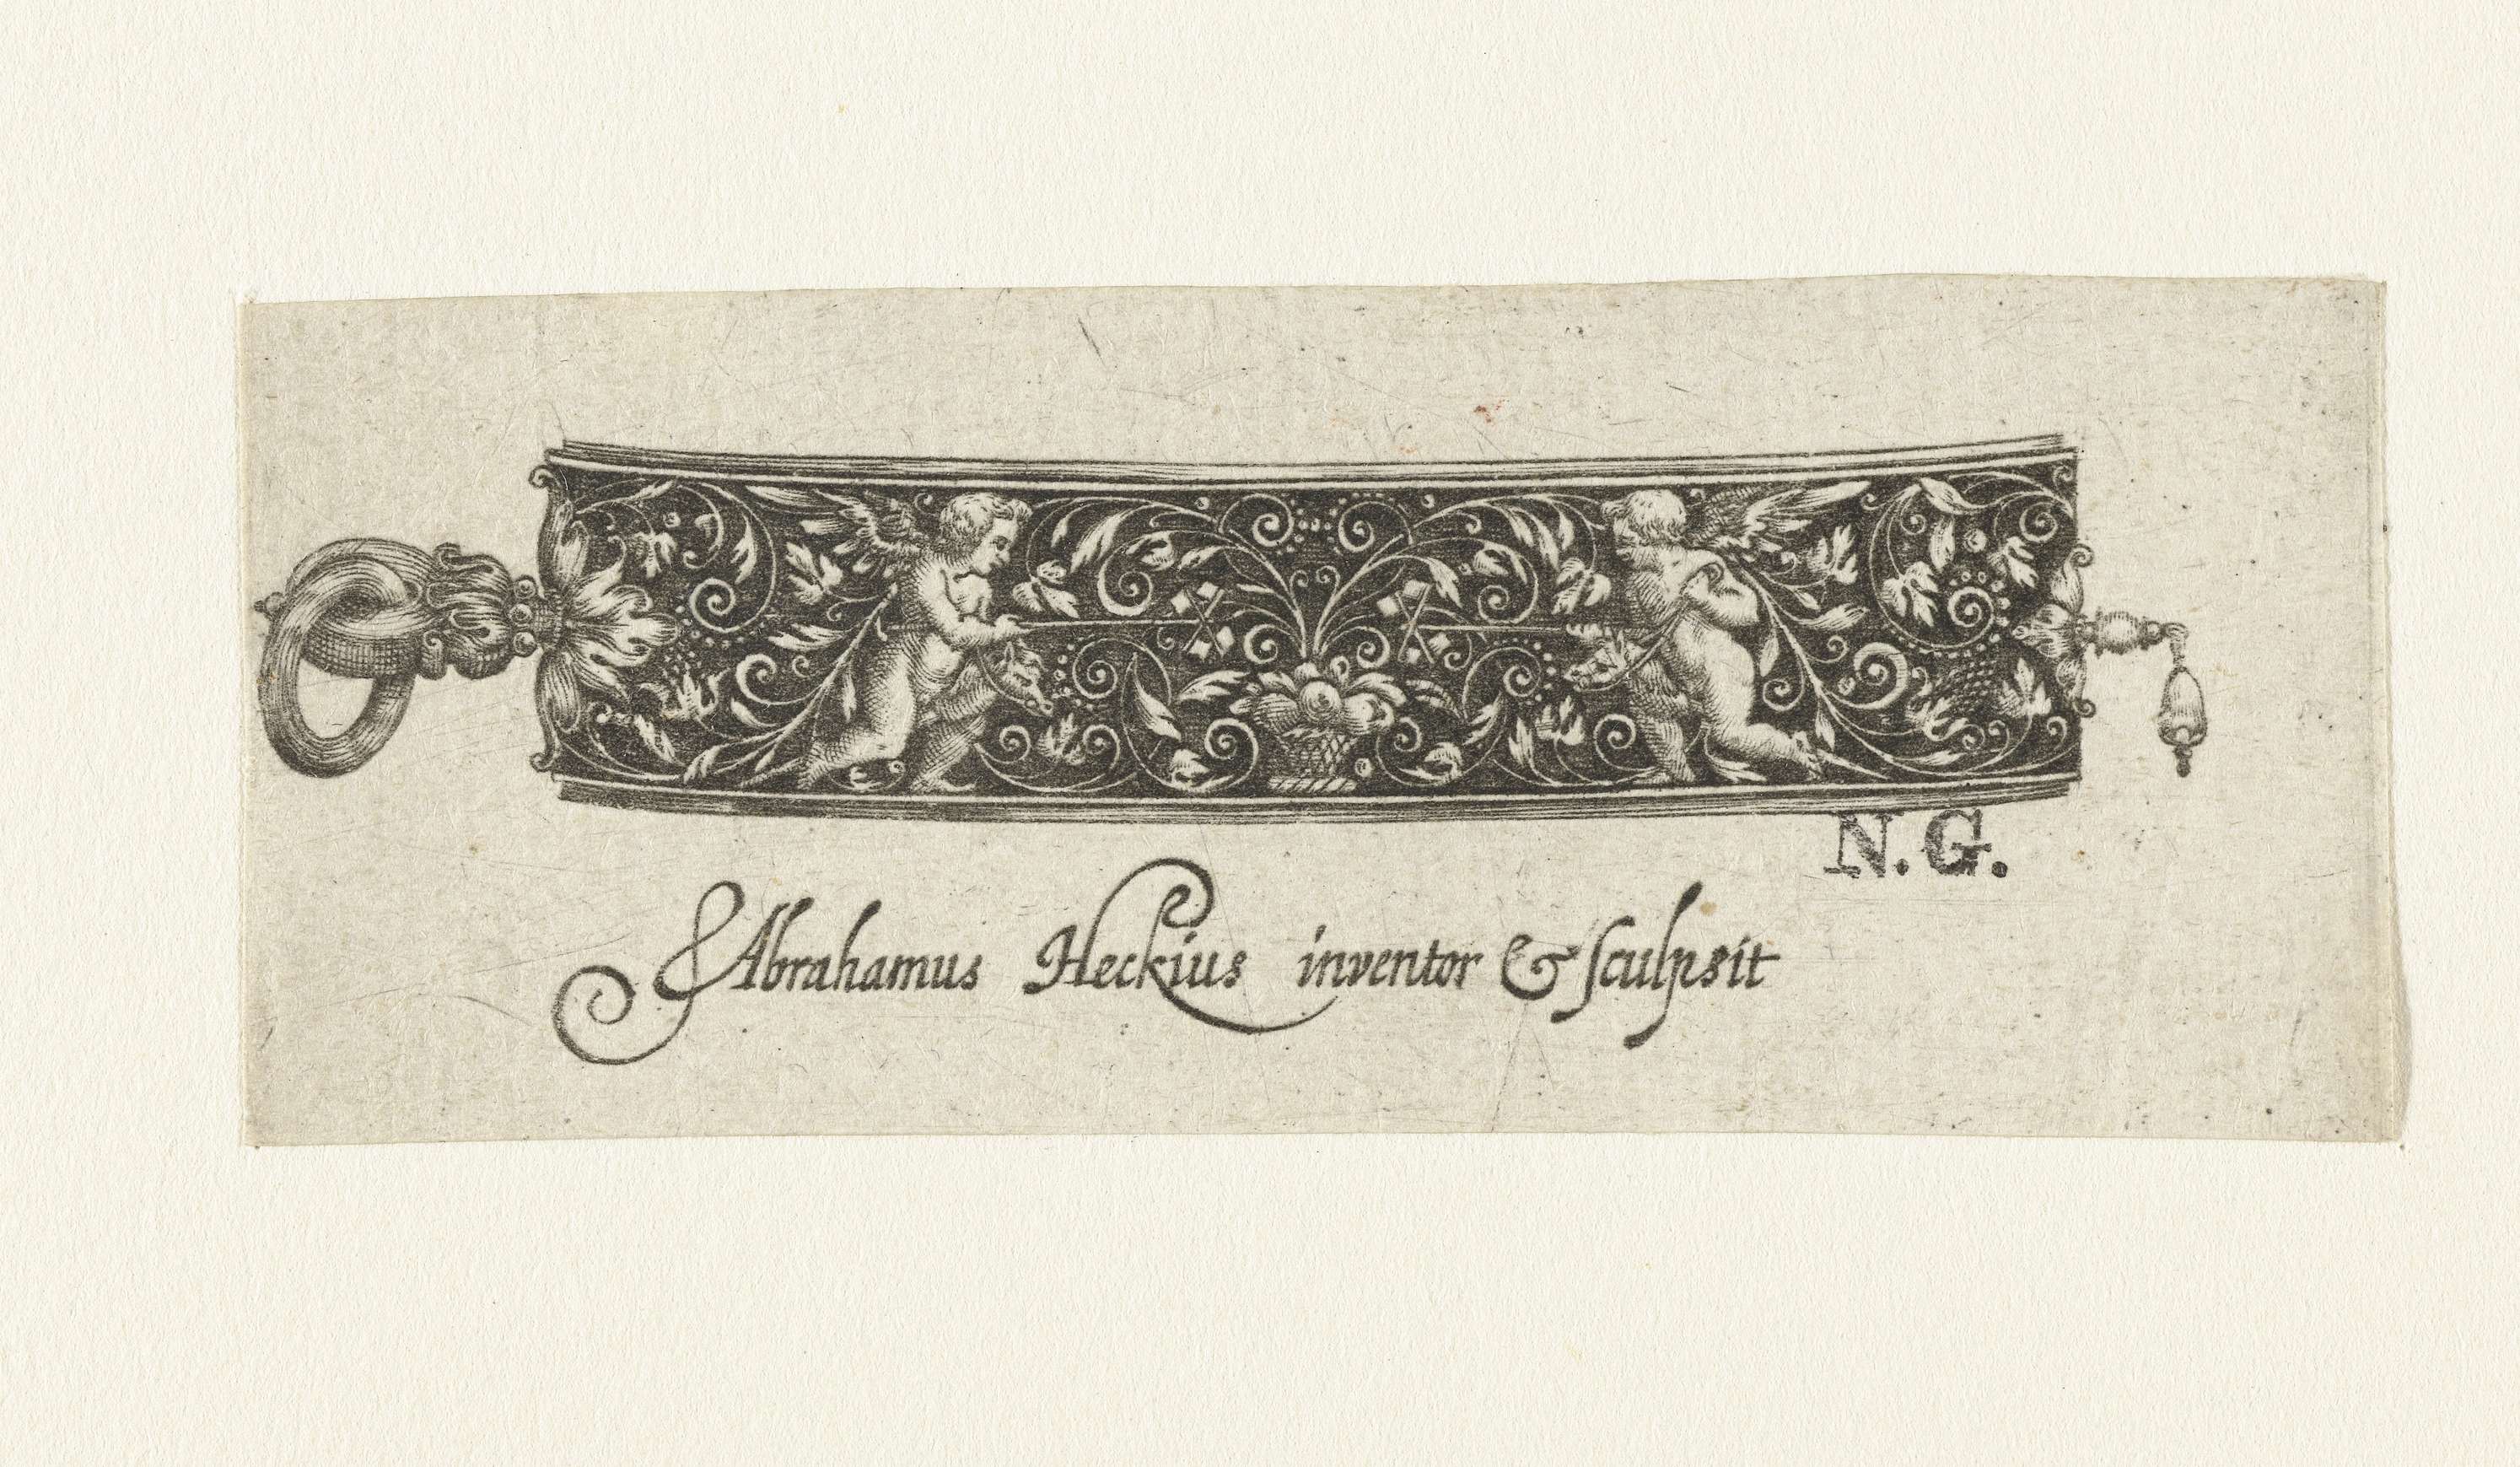 N. G.
Abrahamus Heckius inventor & sculpsit